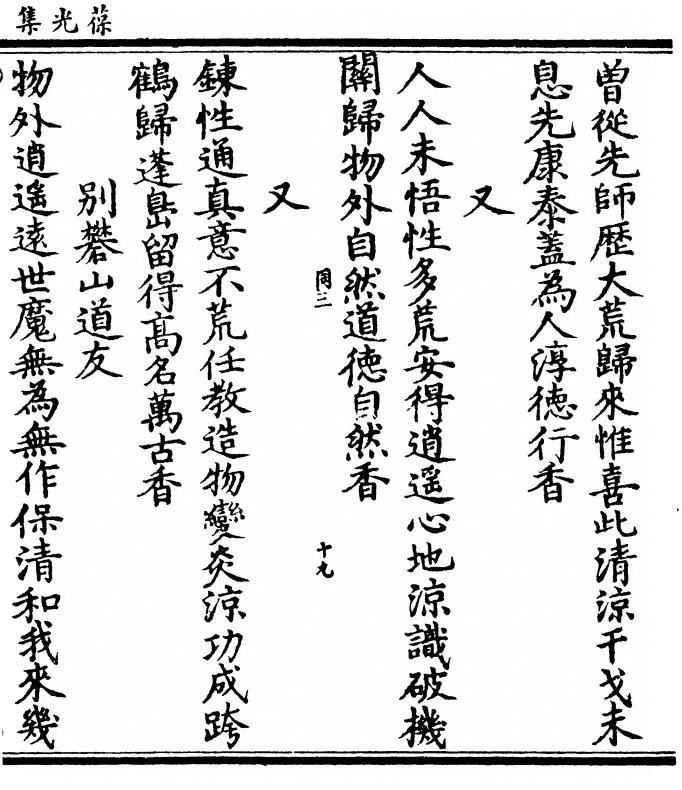 葆光集
曾從先師歷大荒歸來惟喜此清涼干戈未
息先康泰蓋為人淳德行香
又
人人未悟性多荒安得逍遥心地涼識破機
關歸物外自然道德自然香
同三
十九
又
鍊性通真意不荒任教造物變炎涼功成跨
鶴歸蓬島留得高名萬古香
別礬山道友
物外逍遥遠世魔無為無作保清和我來幾